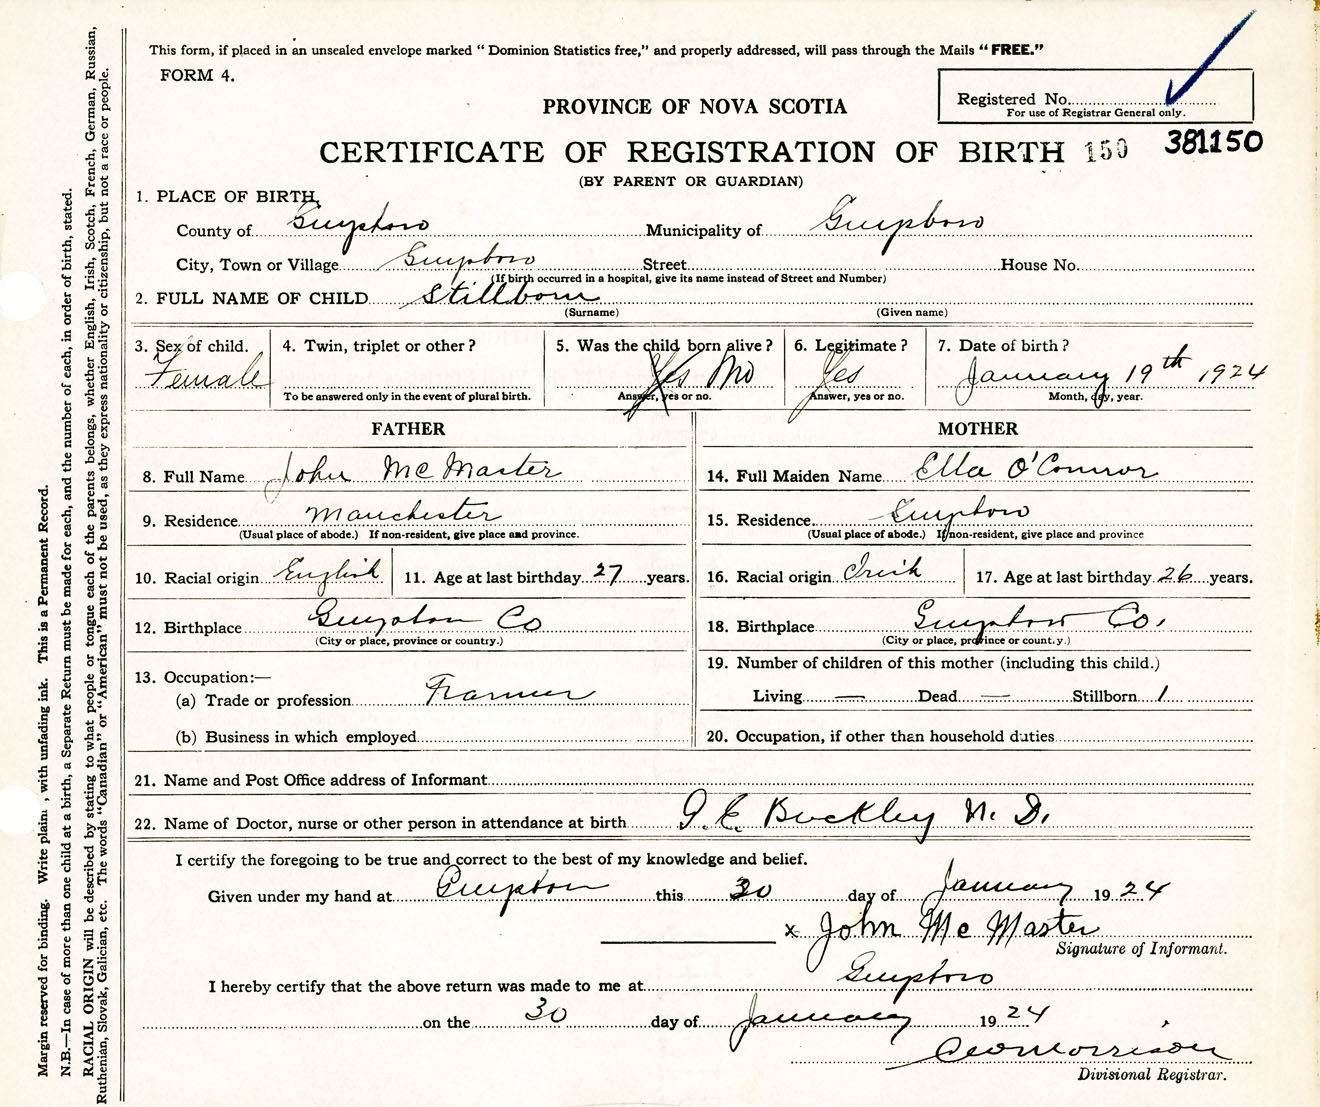 This form, if placed in an unsealed envelope marked “ Dominion Statistics free,” and properly addressed, will pass through the Mails “ FREE.”
FORM 4.
Registered No.
For use of Registrar General only.
PROVINCE OF NOVA SCOTIA
CERTIFICATE OF REGISTRATION OF BIRTH 150 381150
(BY PARENT OR GUARDIAN)
1. PLACE OF BIRTH,
County of Guysboro Municipality of Guysboro
City, Town or Village Guysboro Street House No.
(If birth occurred in a hospital, give its name instead of Street and Number)
2. FULL NAME OF CHILD Stillborn
(Surname) (Given name)
3. Sex of child. 4. Twin, triplet or other? 5. Was the child born alive? 6. Legitimate? 7. Date of birth?
Female Yes No Yes January 19th 1924
To be answered only in the event of plural birth. Answer, yes or no. Answer, yes or no. Month, day, year.
FATHER MOTHER
8. Full Name John McMaster 14. Full Maiden Name Ella O'Connor
9. Residence Manchester 15. Residence Guysboro
(Usual place of abode.) If non-resident, give place and province. (Usual place of abode.) If non-resident, give place and province
10. Racial origin English 11. Age at last birthday 27 years. 16. Racial origin Irish 17. Age at last birthday 26 years.
12. Birthplace Guysboro Co 18. Birthplace Guysboro Co.
(City or place, province or country.) (City or place, province or country.)
13. Occupation:— 19. Number of children of this mother (including this child.)
(a) Trade or profession Farmer Living — Dead — Stillborn 1
(b) Business in which employed 20. Occupation, if other than household duties
21. Name and Post Office address of Informant
22. Name of Doctor, nurse or other person in attendance at birth Buckley M. D.
I certify the foregoing to be true and correct to the best of my knowledge and belief.
Given under my hand at Guysboro this 30 day of January 1924
x John McMaster
Signature of Informant.
I hereby certify that the above return was made to me at Guysboro
on the 30 day of January 1924
Geo Morrison
Divisional Registrar.
Margin reserved for binding. Write plain , with unfading ink. This is a Permanent Record.
N.B.—In case of more than one child at a birth, a Separate Return must be made for each, and the number of each, in order of birth, stated.
RACIAL ORIGIN will be described by stating to what people or tongue each of the parents belongs, whether English, Irish, Scotch, French, German, Russian,
Ruthenian, Slovak, Galician, etc. The words “Canadian” or “American” must not be used, as they express nationality or citizenship, but not a race or people.